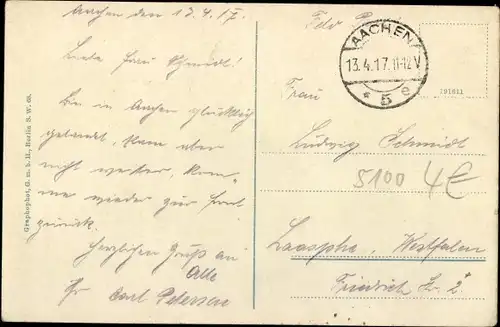 Aachen den 13.4.17.
Liebe Frau Schmidt!
Bin in Aachen glücklich
gelandet, kam aber
nicht weiter, kom-
me wieder zur Front
zurück.
Herzlichen Gruß an
Alle
Ihr Carl Petersen
Graphophot, G. m. b. H., Berlin S. W. 68.
Feld P
AACHEN
13.4.17.11-12V
* 5 e
791611
Frau
Ludwig Schmidt
5100 4€
Laasphe, Westfalen
Friedrich Str. 2